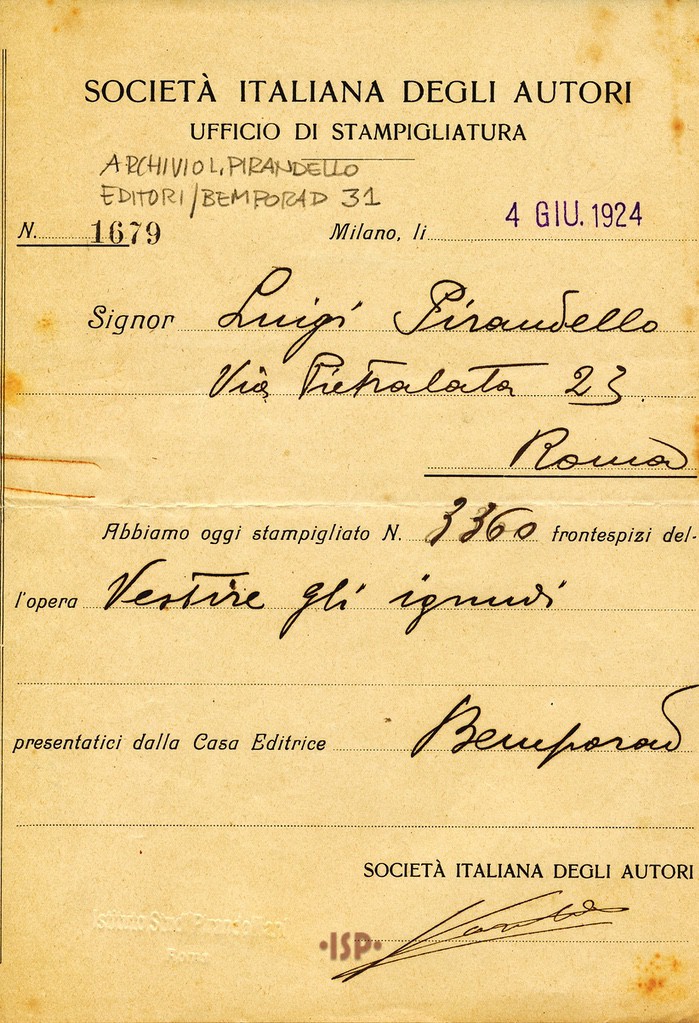 SOCIETÀ ITALIANA DEGLI AUTORI
UFFICIO DI STAMPIGLIATURA
ARCHIVIO L. PIRANDELLO
EDITORI/BEMPORAD 31
N. 1679 Milano, li 4 GIU. 1924
Signor Luigi Pirandello
Via Pietralata 23
Roma
Abbiamo oggi stampigliato N. 3360 frontespizi del-
l'opera Vestire gli ignudi
presentatici dalla Casa Editrice Bemporad
SOCIETÀ ITALIANA DEGLI AUTORI
Roma
•ISP•